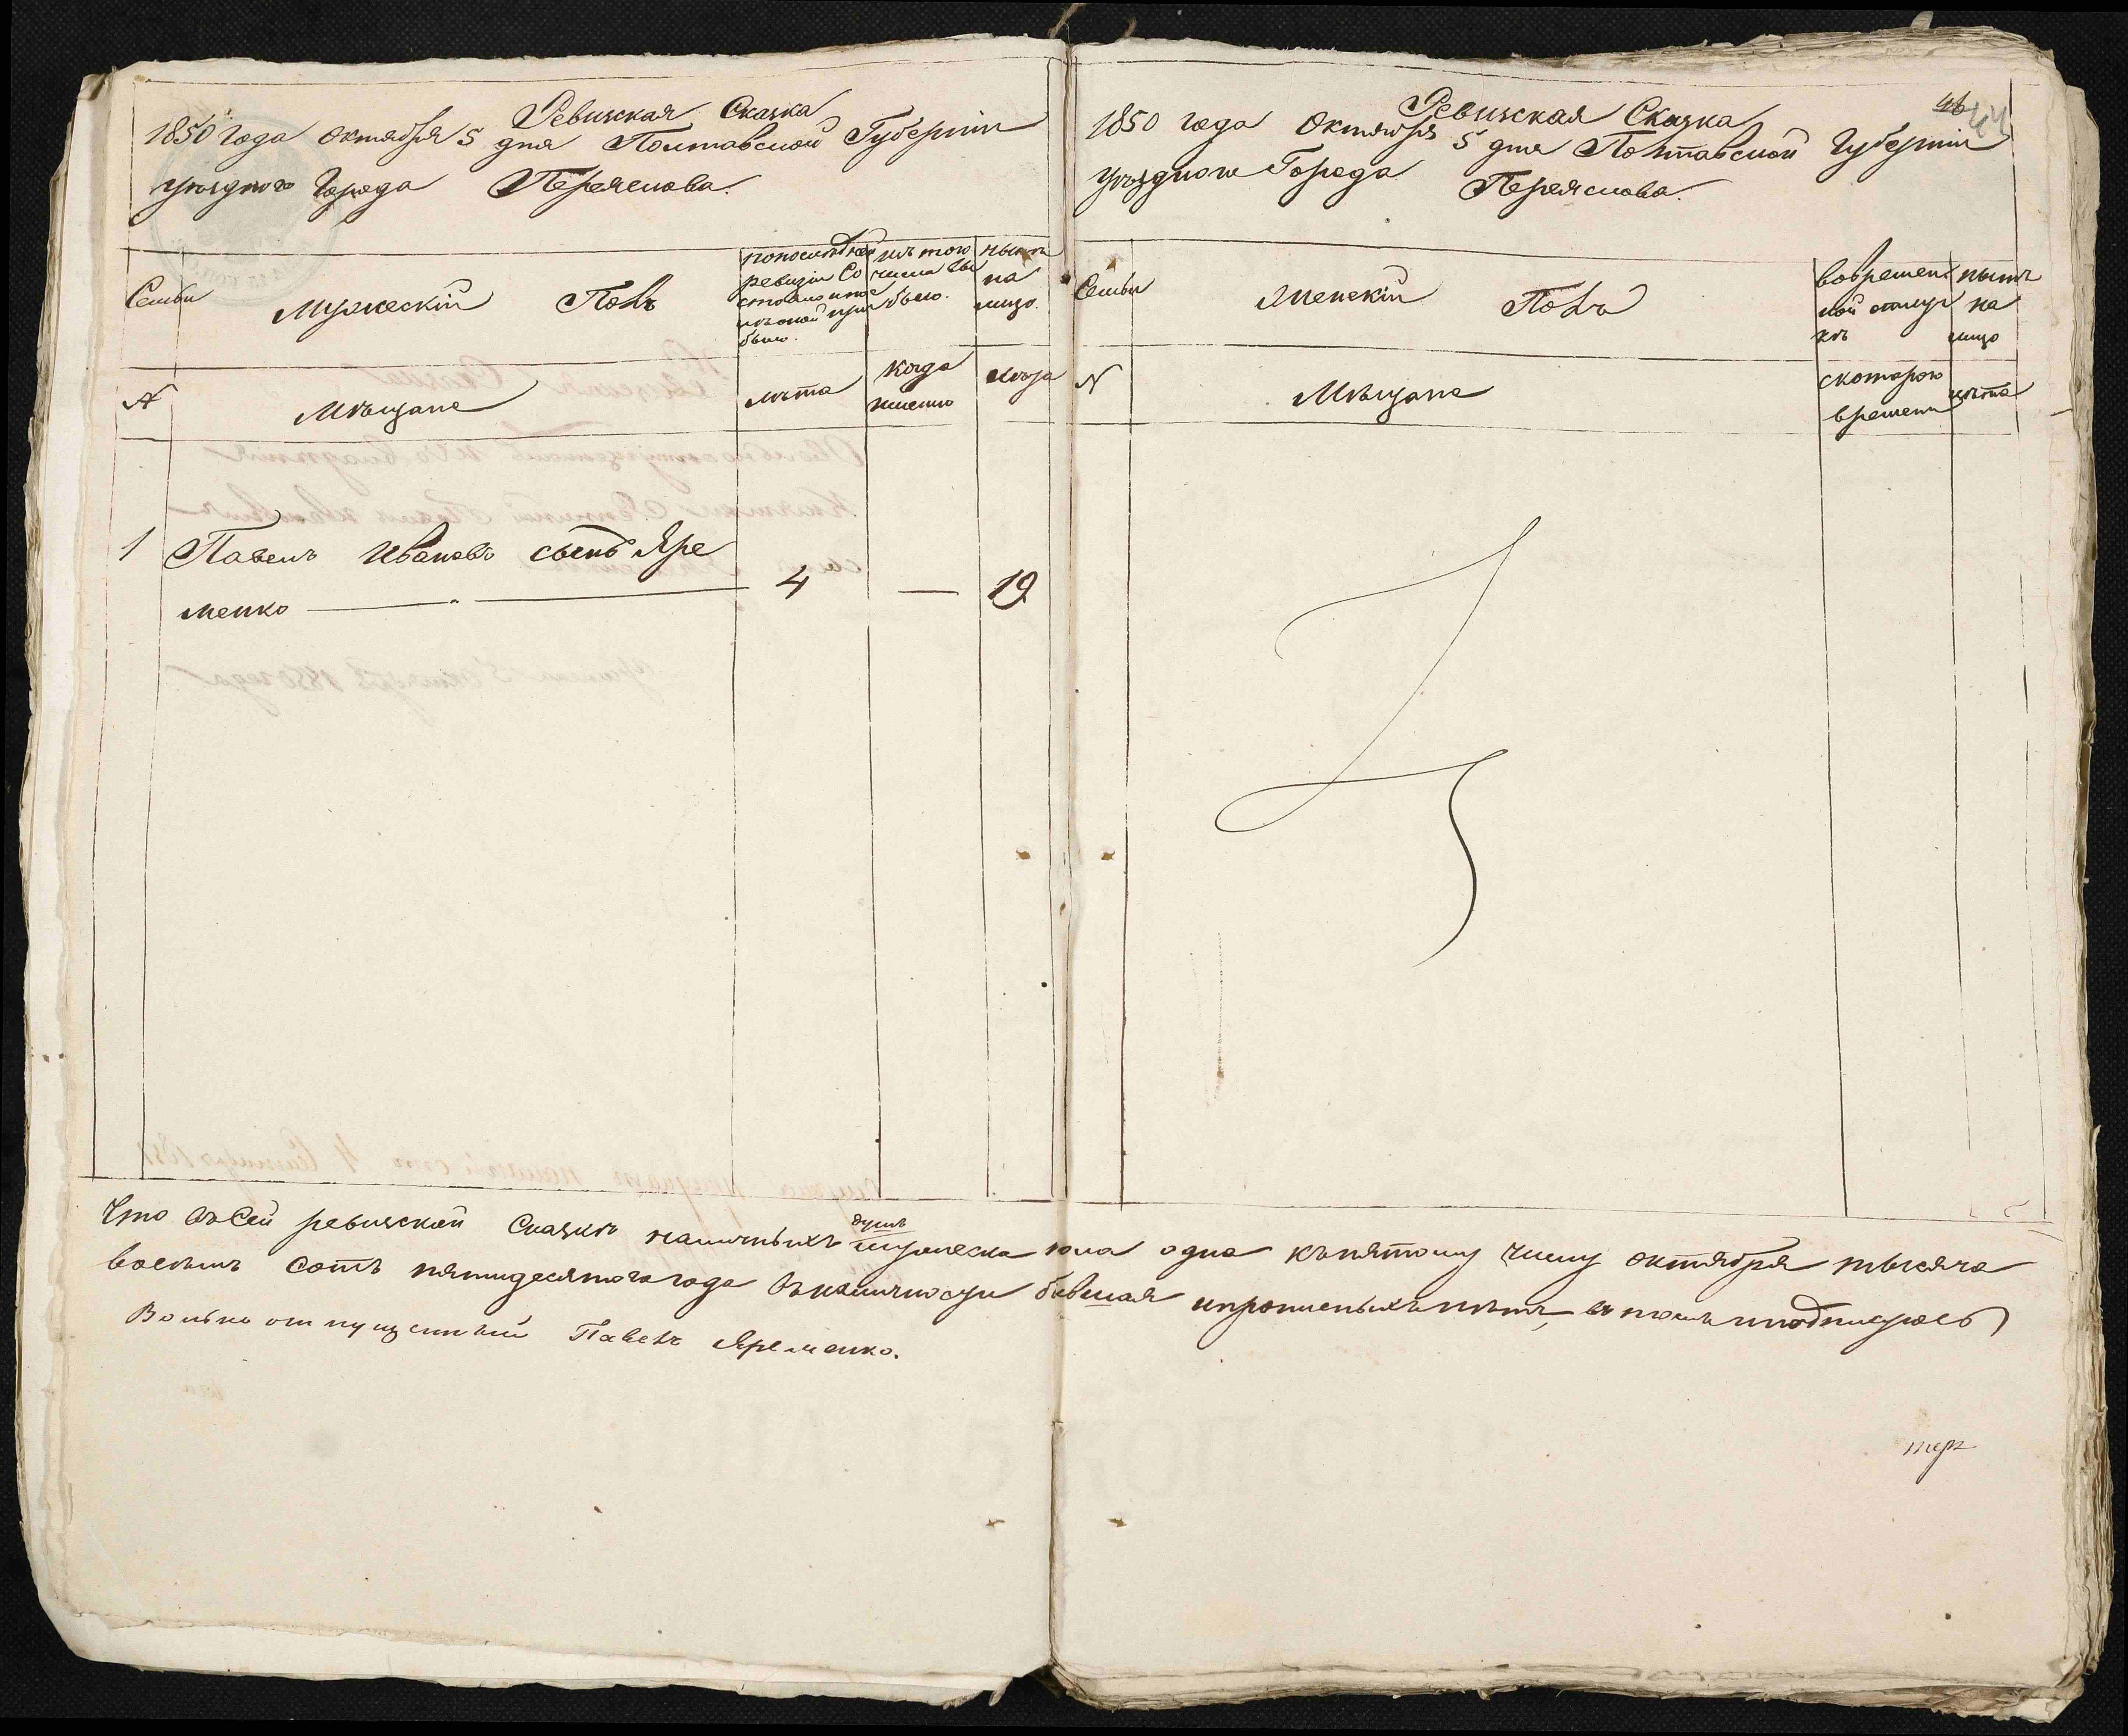 Ревизская Сказка
1850 года Октября 5 дня Полтавской Губерніи
уѣзднаго Города Переяслова.
Семьи
Мужескій Полъ
попослѣдней ревизіи Состояло и после оной прибыло.
изъ того числа выбыло.
нынѣ на лицо.
№
Мѣщане
лѣта
когда именно
лѣта
1 Павелъ Ивановъ сынъ Яре
менко — 4 — 19
Ревизская Сказка
46
44
1850 года Октября 5 дня Полтавской Губерніи
уѣзднаго Города Переяслова.
Семьи
Женскій Полъ
вовременной отлучкѣ
нынѣ на лицо
№
Мѣщане
скотораго времени
лѣта
Что въ Сей ревизской Сказкѣ наличныхъ душъ мужеска пола одна къ пятому числу октября тысяча
восемь сотъ пятидесятого года въ наличности бывшая ипрописныхъ нѣтъ, въ томъ и подписуюсь
Вольно отпущенный Павелъ Яременко.